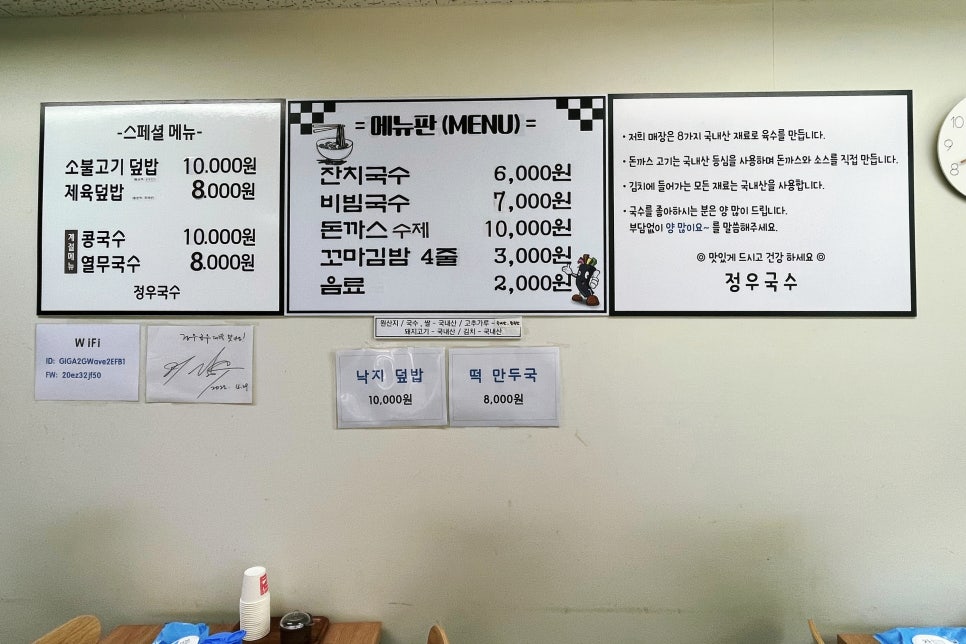 -스페셜 메뉴-
소불고기 덮밥 10.000원
제육덮밥 8.000원
계절메뉴
콩국수 10.000원
열무국수 8.000원
정우국수
= 메뉴판 (MENU) =
잔치국수 6,000원
비빔국수 7,000원
돈까스 수제 10,000원
꼬마김밥 4줄 3,000원
음료 2,000원
• 저희 매장은 8가지 국내산 재료로 육수를 만듭니다.
• 돈까스 고기는 국내산 등심을 사용하며 돈까스와 소스를 직접 만듭니다.
• 김치에 들어가는 모든 재료는 국내산을 사용합니다.
• 국수를 좋아하시는 분은 양 많이 드립니다.
부담없이 양 많이요~ 를 말씀해주세요.
◎ 맛있게 드시고 건강 하세요 ◎
정우국수
원산지 / 국수, 쌀 - 국내산 / 고추가루 -
돼지고기 - 국내산 / 김치 - 국내산
WiFi
ID: GiGA2GWave2EFB1
FW: 20ez32jf50
2022. 4.
낙지 덮밥
10,000원
떡 만두국
8,000원
10
9
8